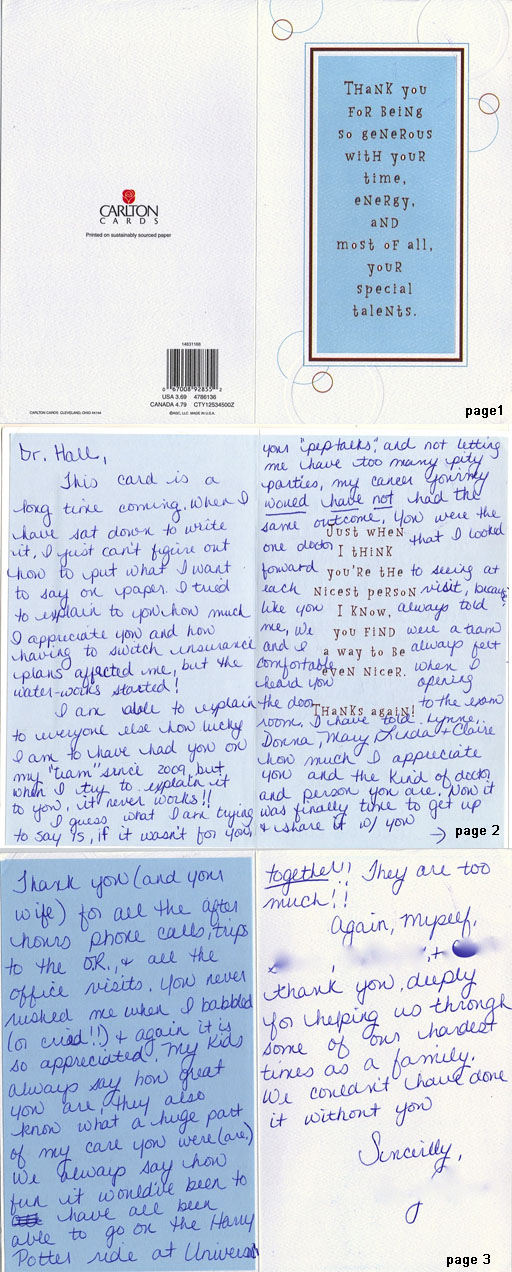 CARLTON
CARDS
Printed on sustainably sourced paper
14831166
0 67008 92855 2
USA 3.69 4786136
CANADA 4.79 CTY12534500Z
CARLTON CARDS CLEVELAND, OHIO 44144
©AGC, LLC MADE IN U.S.A.
THaNK you
FOR BeiNg
so geNeROus
witH youR
time,
eNeRgy,
aND
most oF all,
youR
special
taleNts.
page1
Dr. Hall,
This card is a
long time coming. When I
have sat down to write
it, I just can't figure out
how to put what I want
to say on paper. I tried
to explain to you how much
I appreciate you and how
having to switch insurance
plans affected me, but the
water-works started!
I am able to explain
to everyone else how lucky
I am to have had you on
my "team" since 2009, but
when I try to explain it
to you, it never works!!
I guess what I am trying
to say is, if it wasn't for you,
your "pep talks", and not letting
me have too many pity
parties, my cancer journey
would have not had the
same outcome. You were the
one doctor that I looked
forward to seeing at
each visit, because
like you always told
me, we were a team
and I always felt
comfortable when I
heard you opening
the door to the exam
room. I have told Lynne,
Donna, Mary Linda + Claire
how much I appreciate
you and the kind of doctor
and person you are. Now it
was finally time to get up
& share it w/ you
Just wHeN
I tHiNK
you'Re tHe
Nicest peRsoN
I KNow,
you FiND
a way to Be
eveN NiceR.
THaNKs agaiN!
page 2
Thank you (and your
wife) for all the after
hours phone calls, trips
to the OR, & all the
office visits. You never
rushed me when I babbled
(or cried!!) & again it is
so appreciated. My kids
always say how great
you are, they also
know what a huge part
of my care you were (are.)
We always say how
fun it would've been to
have all been
able to go on the Harry
Potter ride at Universal
together!! They are too
much!!
Again, myself,
, +
thank you, deeply
for helping us through
some of our hardest
times as a family.
We couldn't have done
it without you
Sincerily,
J
page 3